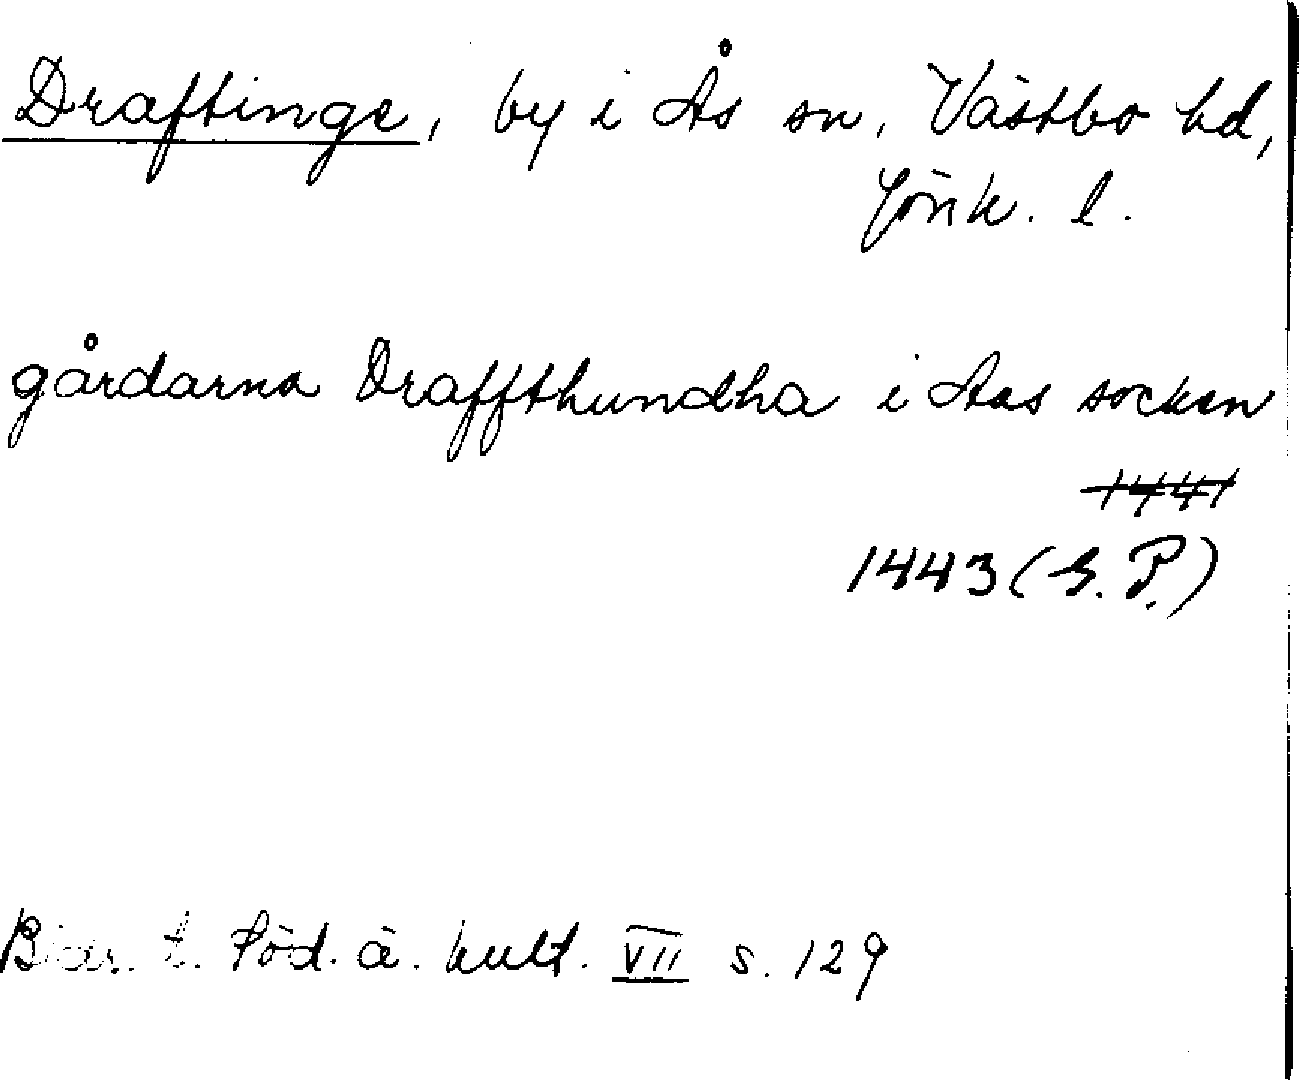 Draftinge, by i Ås sn, Västbo hd,
Jönk. l.
gårdarna Draffthundha i Aas socken
1441
1443 (G. P.)
Bidr. t. Söd. ä. kult. VII s. 129